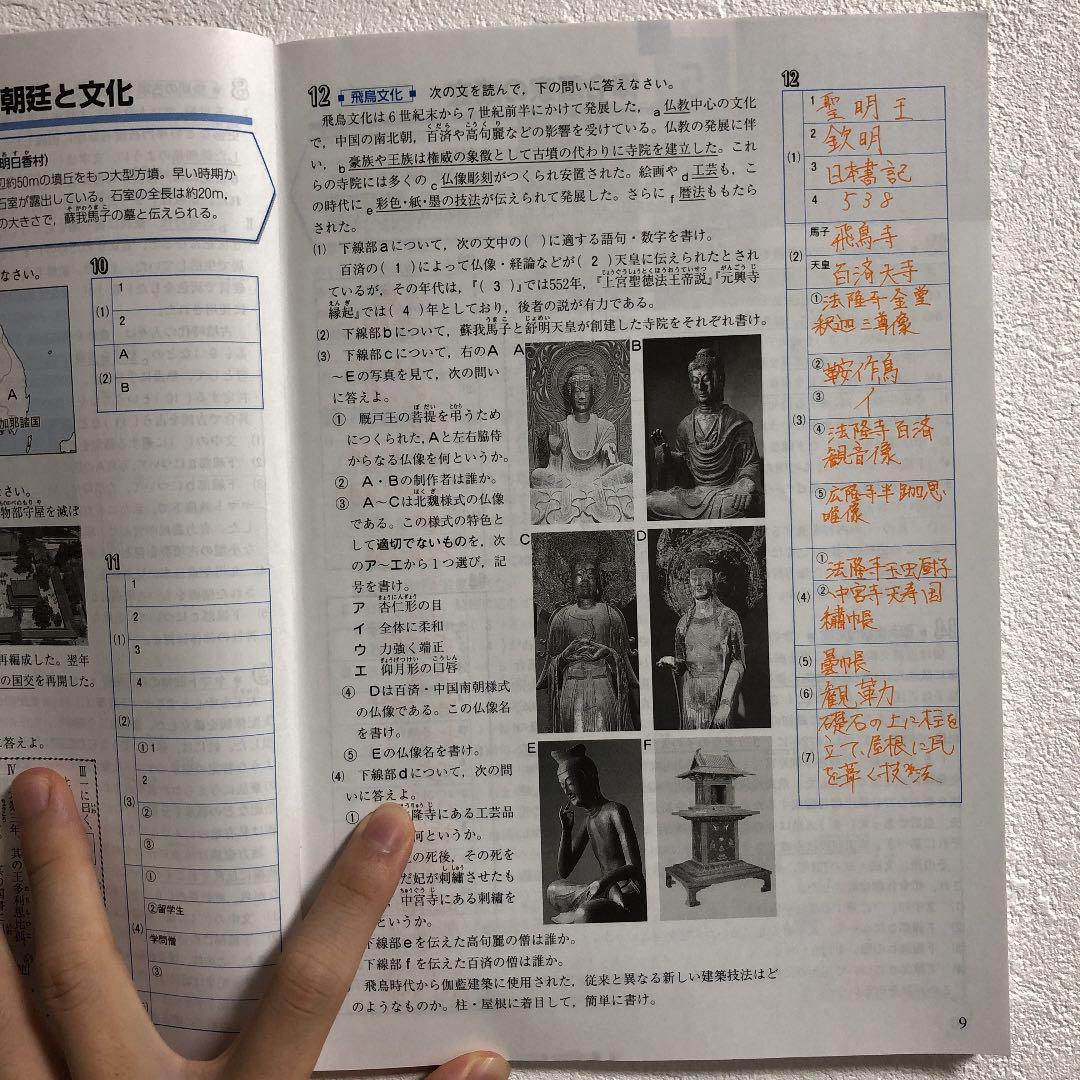 朝廷と文化
明日香村)
辺約50mの墳丘をもつ大型方墳。早い時期か
石室が露出している。石室の全長は約20m,
の大きさで，蘇我馬子の墓と伝えられる。
そがのうまこ
なさい。
A
加耶諸国
なさい。
物部守屋を滅ぼ
再編成した。翌年
の国交を再開した。
に答えよ。
10
(1)
1
2
(2)
A
B
11
(1)
1
2
3
4
(2)
(3)
①1
2
②
③
(4)
①
②留学生
学問僧
③
12 飛鳥文化 次の文を読んで，下の問いに答えなさい。
飛鳥文化は6世紀末から7世紀前半にかけて発展した，a仏教中心の文化
で，中国の南北朝，百済や高句麗などの影響を受けている。仏教の発展に伴
い，b豪族や王族は権威の象徴として古墳の代わりに寺院を建立した。これ
らの寺院には多くのc仏像彫刻がつくられ安置された。絵画やd工芸も，こ
の時代にe彩色・紙・墨の技法が伝えられて発展した。さらにf暦法ももたら
された。
(1) 下線部aについて，次の文中の( )に適する語句・数字を書け。
百済の( 1 )によって仏像・経論などが( 2 )天皇に伝えられたとされ
ているが，その年代は，『( 3 )』では552年，『上宮聖徳法王帝説』『元興寺
縁起』では( 4 )年としており，後者の説が有力である。
(2) 下線部bについて，蘇我馬子と舒明天皇が創建した寺院をそれぞれ書け。
(3) 下線部cについて，右のA
～Eの写真を見て，次の問い
に答えよ。
① 厩戸王の菩提を弔うため
につくられた，Aと左右脇侍
からなる仏像を何というか。
② A・Bの制作者は誰か。
③ A～Cは北魏様式の仏像
である。この様式の特色と
して適切でないものを，次
のア～エから1つ選び，記
号を書け。
ア 杏仁形の目
イ 全体に柔和
ウ 力強く端正
エ 仰月形の口唇
④ Dは百済・中国南朝様式
の仏像である。この仏像名
を書け。
⑤ Eの仏像名を書け。
(4) 下線部dについて，次の問
いに答えよ。
①
隆寺にある工芸品
何というか。
の死後，その死を
だ妃が刺繡させたも
中宮寺にある刺繡を
というか。
下線部eを伝えた高句麗の僧は誰か。
下線部fを伝えた百済の僧は誰か。
飛鳥時代から伽藍建築に使用された，従来と異なる新しい建築技法はど
のようなものか。柱・屋根に着目して，簡単に書け。
A
B
C
D
E
F
12
(1)
1 聖明王
2 欽明
3 日本書記
4 538
(2)
馬子 飛鳥寺
天皇 百済大寺
(3)
①法隆寺金堂
釈迦三尊像
②鞍作鳥
③イ
④法隆寺百済
観音像
⑤広隆寺半跏思
惟像
(4)
①法隆寺玉虫厨子
②中宮寺天寿国
繡帳
(5) 曇帳
(6) 観勒
(7)
礎石の上に柱を
立て、屋根に瓦
を葺く技法
9